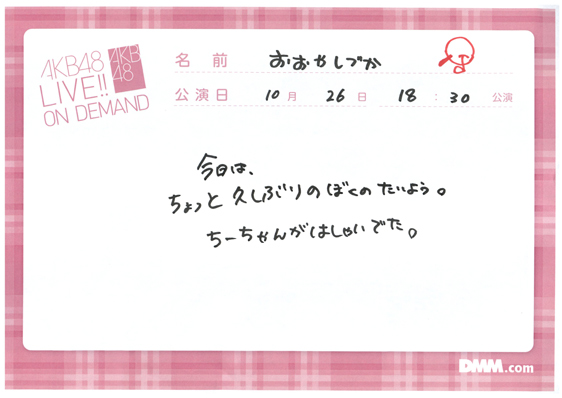 AKB48
LIVE!!
ON DEMAND
AKB
48
名前 おおやしずか
公演日 10月 26日 18:30 公演
今日は、
ちょっと久しぶりのぼくのたいよう。
ちーちゃんがはしゃいでた。
DMM.com